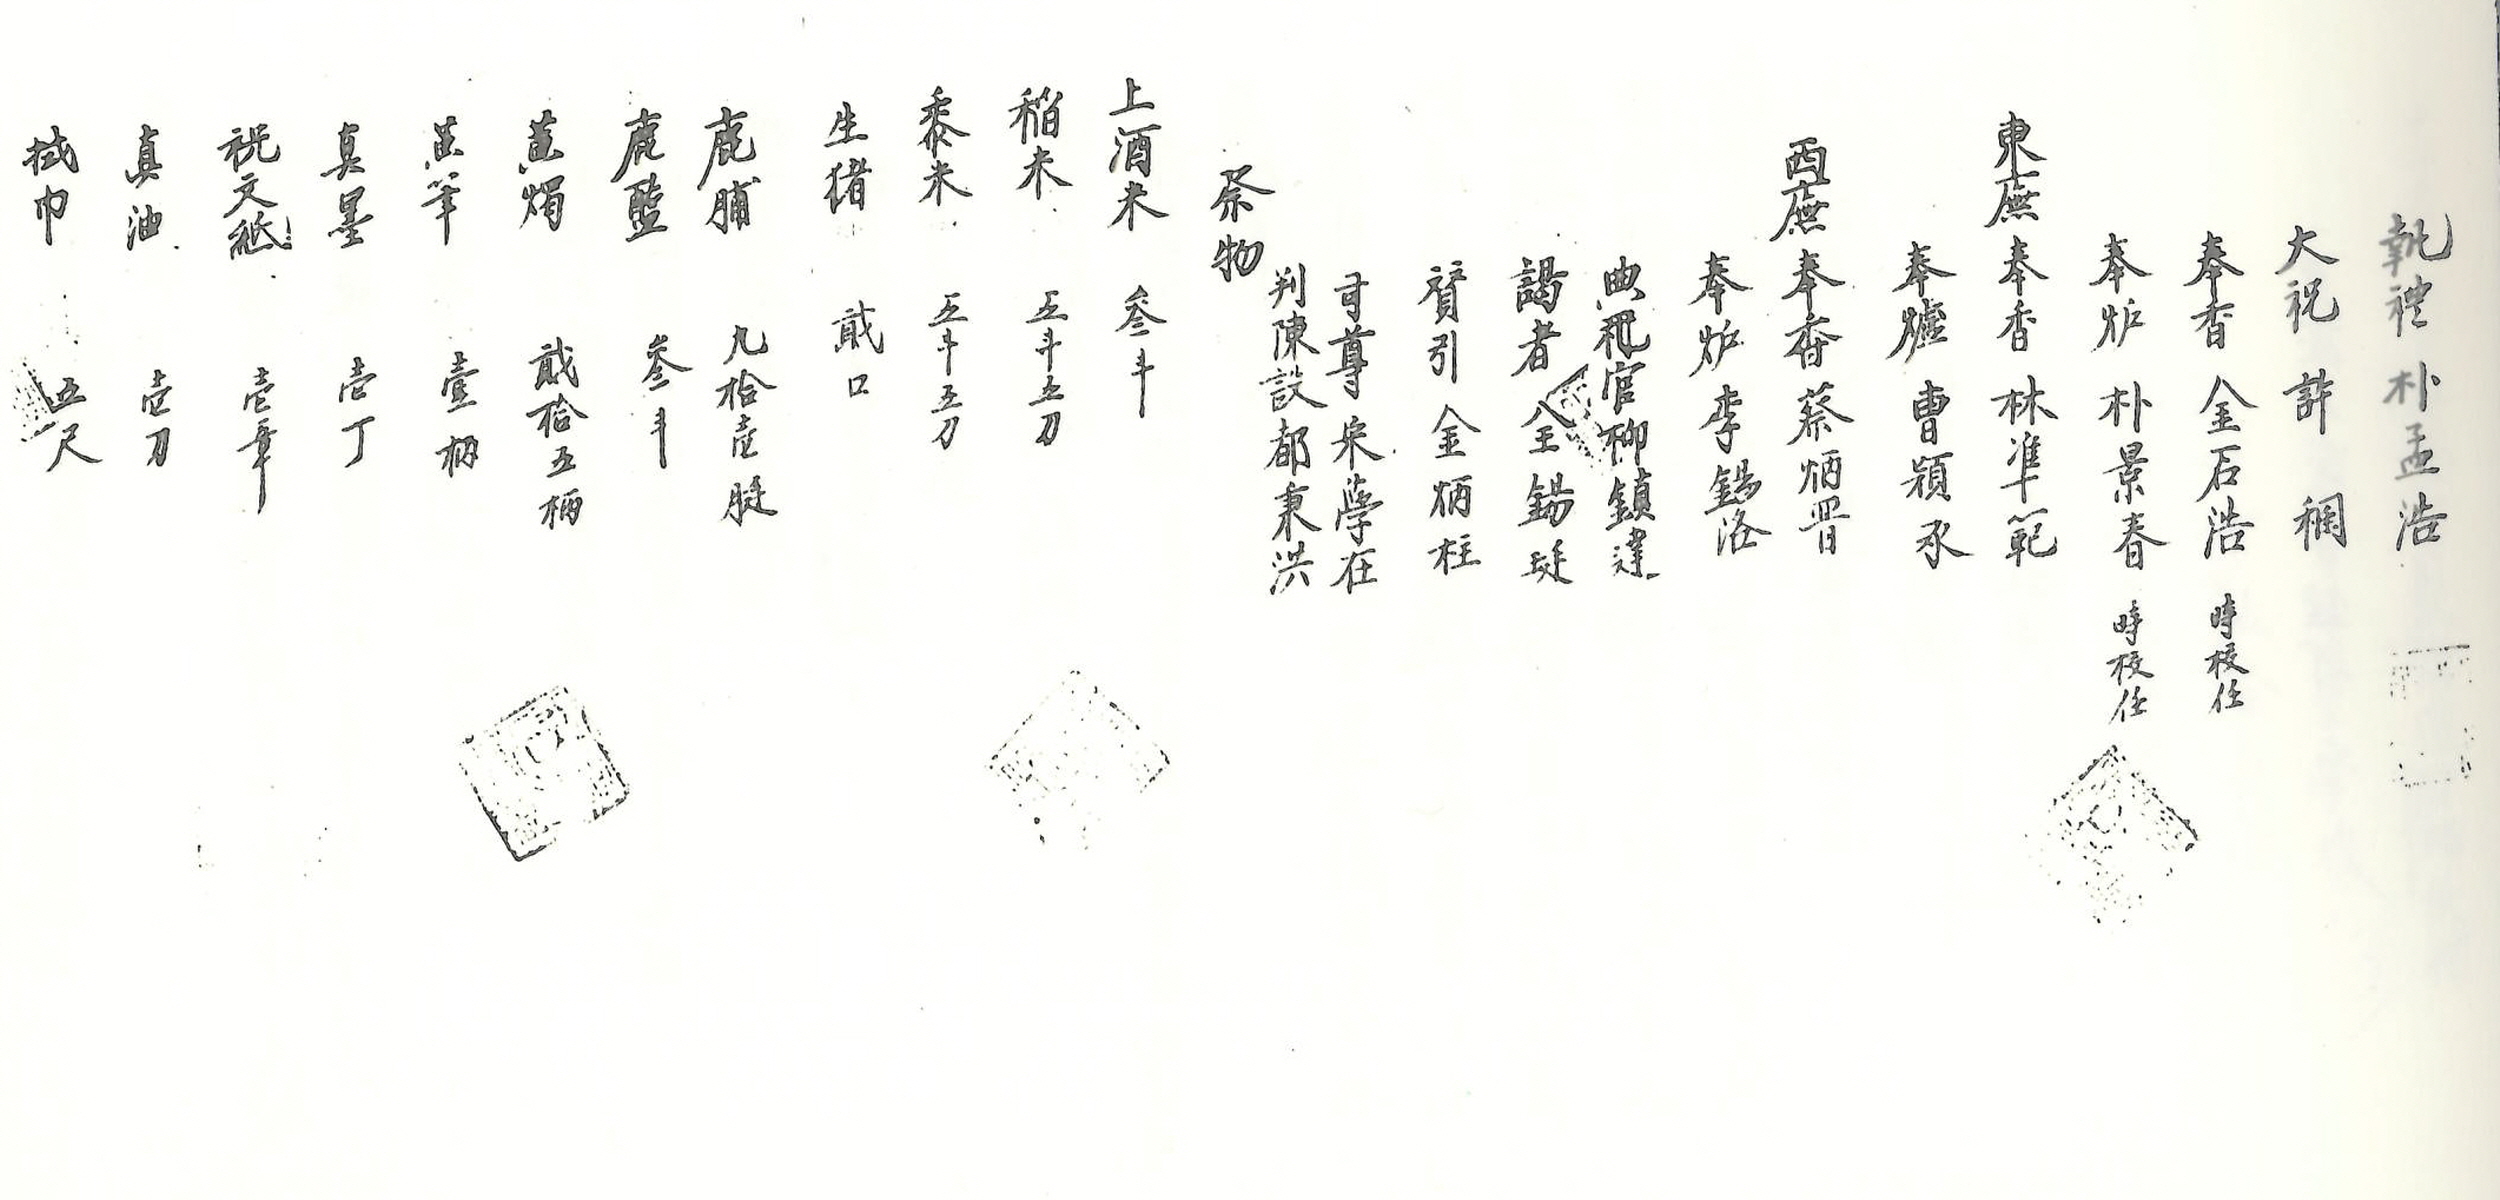 執禮 朴孟浩
大祝 許 稠
奉香 金石浩 時校任
奉炉 朴景春 時校任
東廡 奉香 林準範
奉爐 曺潁承
西廡 奉香 蔡炳晋
奉炉 李錫洛
典祀官 柳鎮達
謁者 全錫珽
贊引 金炳柱
司尊 宋學在
判陳設 都秉洪
祭物
上酒米 叄斗
稻米 五斗五刀
黍米 五斗五刀
生猪 貳口
鹿脯 九拾壱脡
鹿醢 叄斗
黃燭 貳拾五柄
黃筆 壹柄
真墨 壱丁
祝文紙 壱章
真油 壱刀
拭巾 五尺